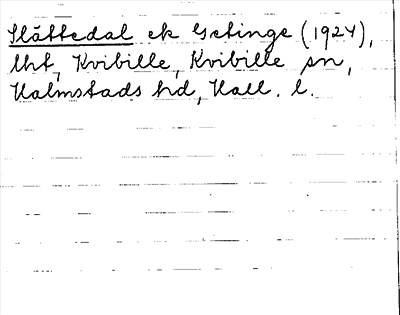 Slättedal ek Getinge (1924),
lht, Kvibille, Kvibille sn,
Halmstads hd, Hall. l.